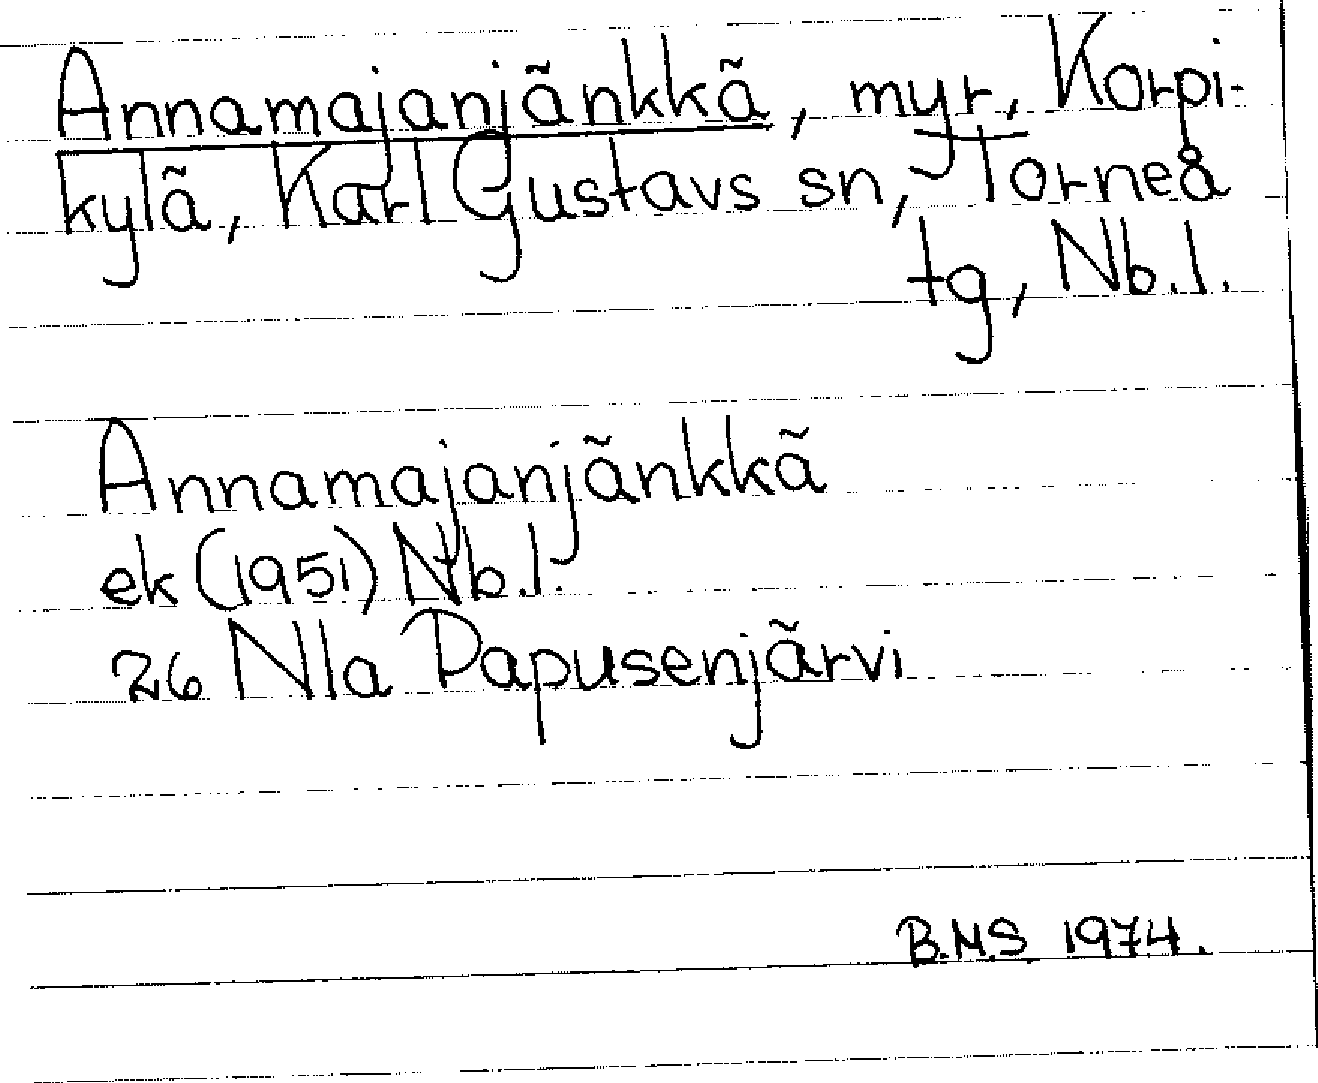 Annamajanjänkkä, myr, Korpi-
kylä, Karl Gustavs sn, Torneå
tg, Nb.l.
Annamajanjänkkä
ek (1951) Nb.l.
26 Nla Papusenjärvi
B.M.S. 1974.